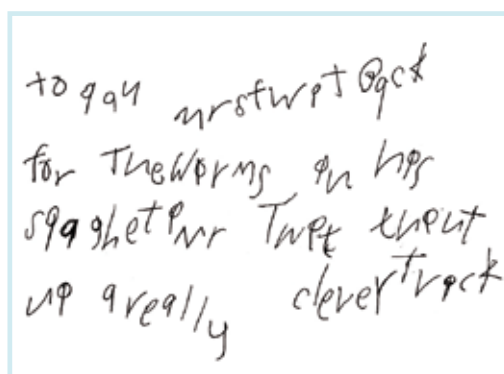 to qay mrstwit Back
for Theworms in his
spaghetimr Twit thiut
up areally cleverTrick